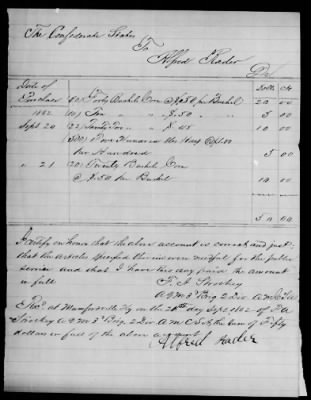 The Confederate States
To
Alfred Rader
Dr
Date of
Purchase (40) Forty Bushels Corn @ $.50 per Bushel 20 00
1862 (10) Ten " " " $.50 " 5 00
Sept 20 (22) Twenty Two " " $ .45 10 00
(500) Five Hundred lbs Hay
per Hundred 5 00
" 21 (20) Twenty Bushels Corn
@ $.50 per Bushel 10 00
50 00
I certify on honor that the above account is correct and just;
that the articles specified therein were needful for the public
service and that I have this day paid the amount
in full
A Q M 3d Brig 2 Div A M C S A
Recd at Munfordville Ky on the 20th day Sept 1862 of F A
A Q M 3d Brig 2 Div A M C S A the Sum of Fifty
dollars in full of the above account
Alfred Rader